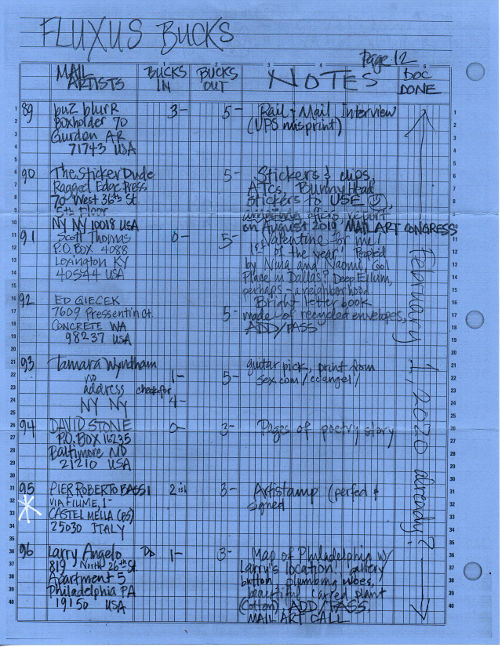 FLUXUS BUCKS
Page 12
MAIL ARTISTS
BUCKS IN
BUCKS OUT
NOTES
DOC DONE
89 buZ blurr 3- 5- Rail & Mail Interview
Boxholder 70 (UPS misprint)
Gurdon AR
71743 USA
90 The Sticker Dude 5- Stickers & clips,
Ragged Edge Press ATCs, Bunny Head
70 West 36th St Stickers to USE
5th Floor
NY NY 10018 USA on August 2019 MAIL ART CONGRESS
91 Scott Thomas 0- 5- Valentine for me!
P.O. BOX 4088 1st of the year!
Lexington KY by Nate and Naomi, Cool
40544 USA Place in Dallas? Deep Ellum,
perhaps - a neighborhood
92 ED GIECEK 5- Bright letter book
7609 Pressentin Ct. made of recycled envelopes,
CONCRETE WA ADD/PASS
98237 USA
93 Tamara Wyndham 1- 5- guitar picks, print from
no address check for 4-
NY NY
94 DAVID STONE 0- 3- Pages of poetry story
P.O. BOX 16235
Baltimore MD
21210 USA
95 PIER ROBERTO BASSI 2 3- Artistamp (perfed &
VIA FIUME, 1- signed
CASTEL MELLA (BS)
25030 ITALY
96 Larry Angelo 1- 3- Map of Philadelphia w/
819 North 26th St Larry's location, gallery
Apartment 5 button, plumbing woes,
Philadelphia PA beautiful carved plant
19130 USA (cotton), ADD/PASS,
MAIL ART CALL
February 1, 2020 already?